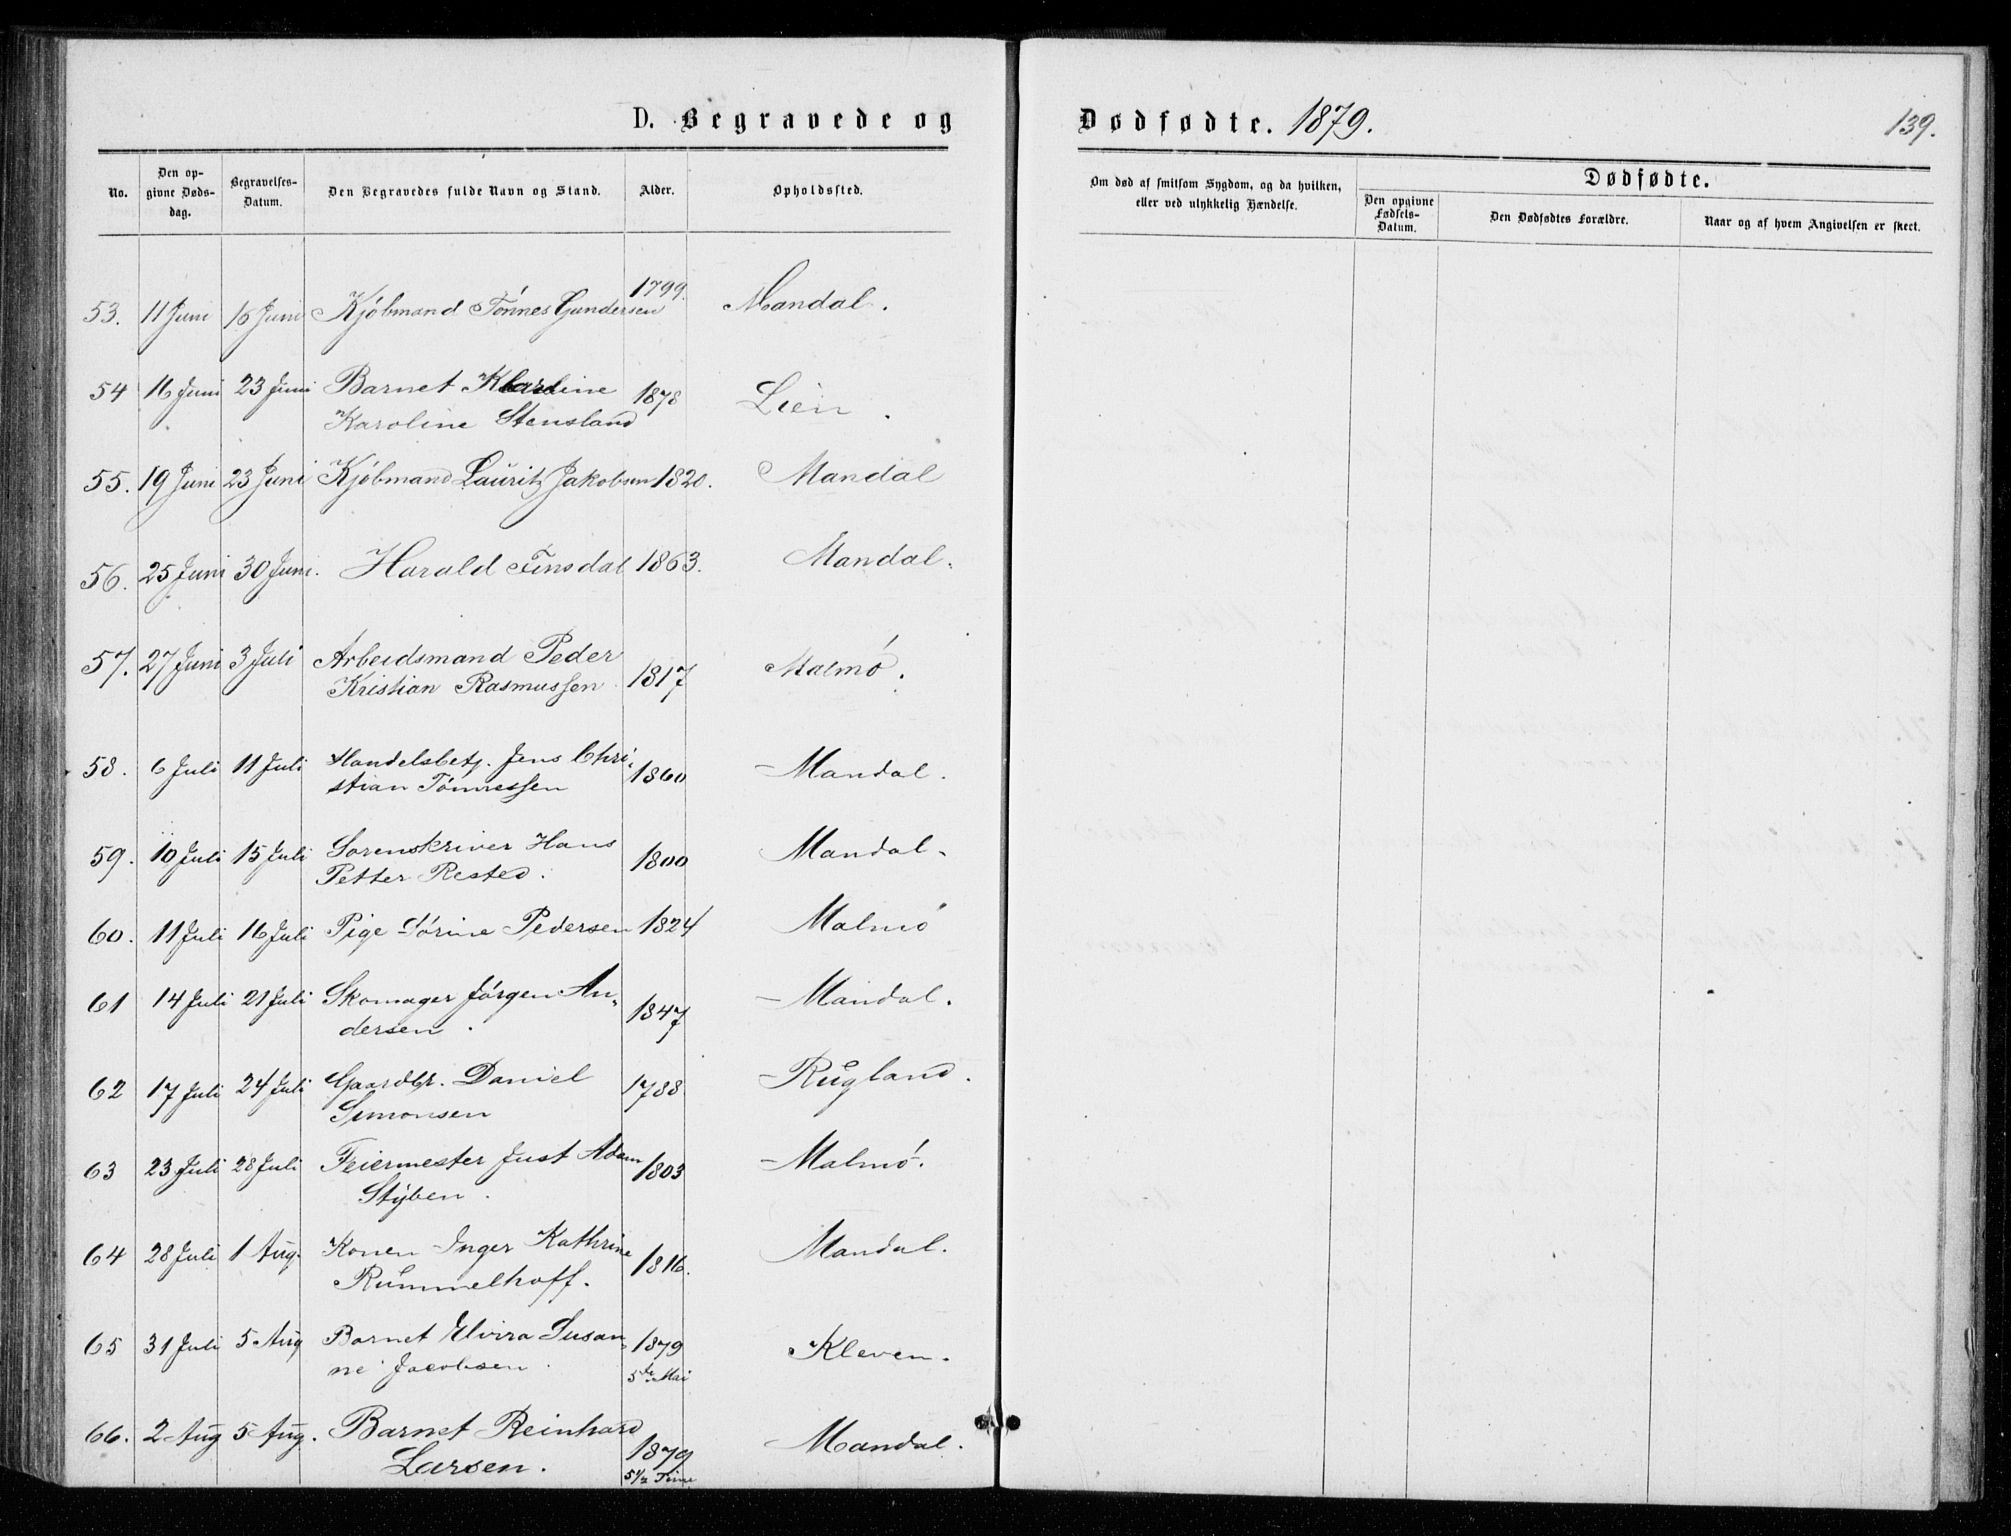 D. Begravede og Dødfødte. 1879. 139.
No. Den opgivne Dødsdag. Begravelses-Datum. Den Begravedes fulde Navn og Stand. Alder. Opholdssted.
Om død af smitsom Sygdom, og da hvilken, eller ved ulykkelig Hændelse. Dødfødte. Den opgivne Fødsels-Datum. Den Dødfødtes Forældre. Naar og af hvem Angivelsen er skeet.
53. 11 Juni 16 Juni Kjøbmand Tønnes Gundersen 1799. Mandal.
54 16 Juni 23 Juni Barnet
Karoline Stensland 1878 Lien.
55. 19 Juni 23 Juni Kjøbmand Lauritz Jakobsen 1820. Mandal
56. 25 Juni 30 Juni. Harald Finsdal 1863. Mandal.
57. 27 Juni 3 Juli Arbeidsmand Peder
Kristian Rasmussen 1817 Malmø.
58. 6 Juli 11 Juli Handelsbetj. Jens Chri-
stian Tønnessen 1860 Mandal.
59. 10 Juli 15 Juli Sorenskriver Hans
Petter Rested. 1800 Mandal.
60. 11 Juli 16 Juli Pige Sørine Pedersen 1824 Malmø
61 14 Juli 21 Juli Skomager Jørgen An-
dersen. 1847 Mandal.
62 17 Juli 24 Juli Gaardbr. Daniel
Simonsen 1788 Rugland.
63 23 Juli 28 Juli Feiermester Just Adam
Stÿben. 1803 Malmø.
64 28 Juli 1 Aug. Konen Inger Kathrine
Rummelhoff. 1816. Mandal.
65 31 Juli 5 Aug Barnet Elvira Susan-
ne Jacobsen. 1879 5te Mai Kleven.
66. 2 Aug 5 Aug. Barnet Reinhard
Larsen. 1879 5½ Time Mandal.